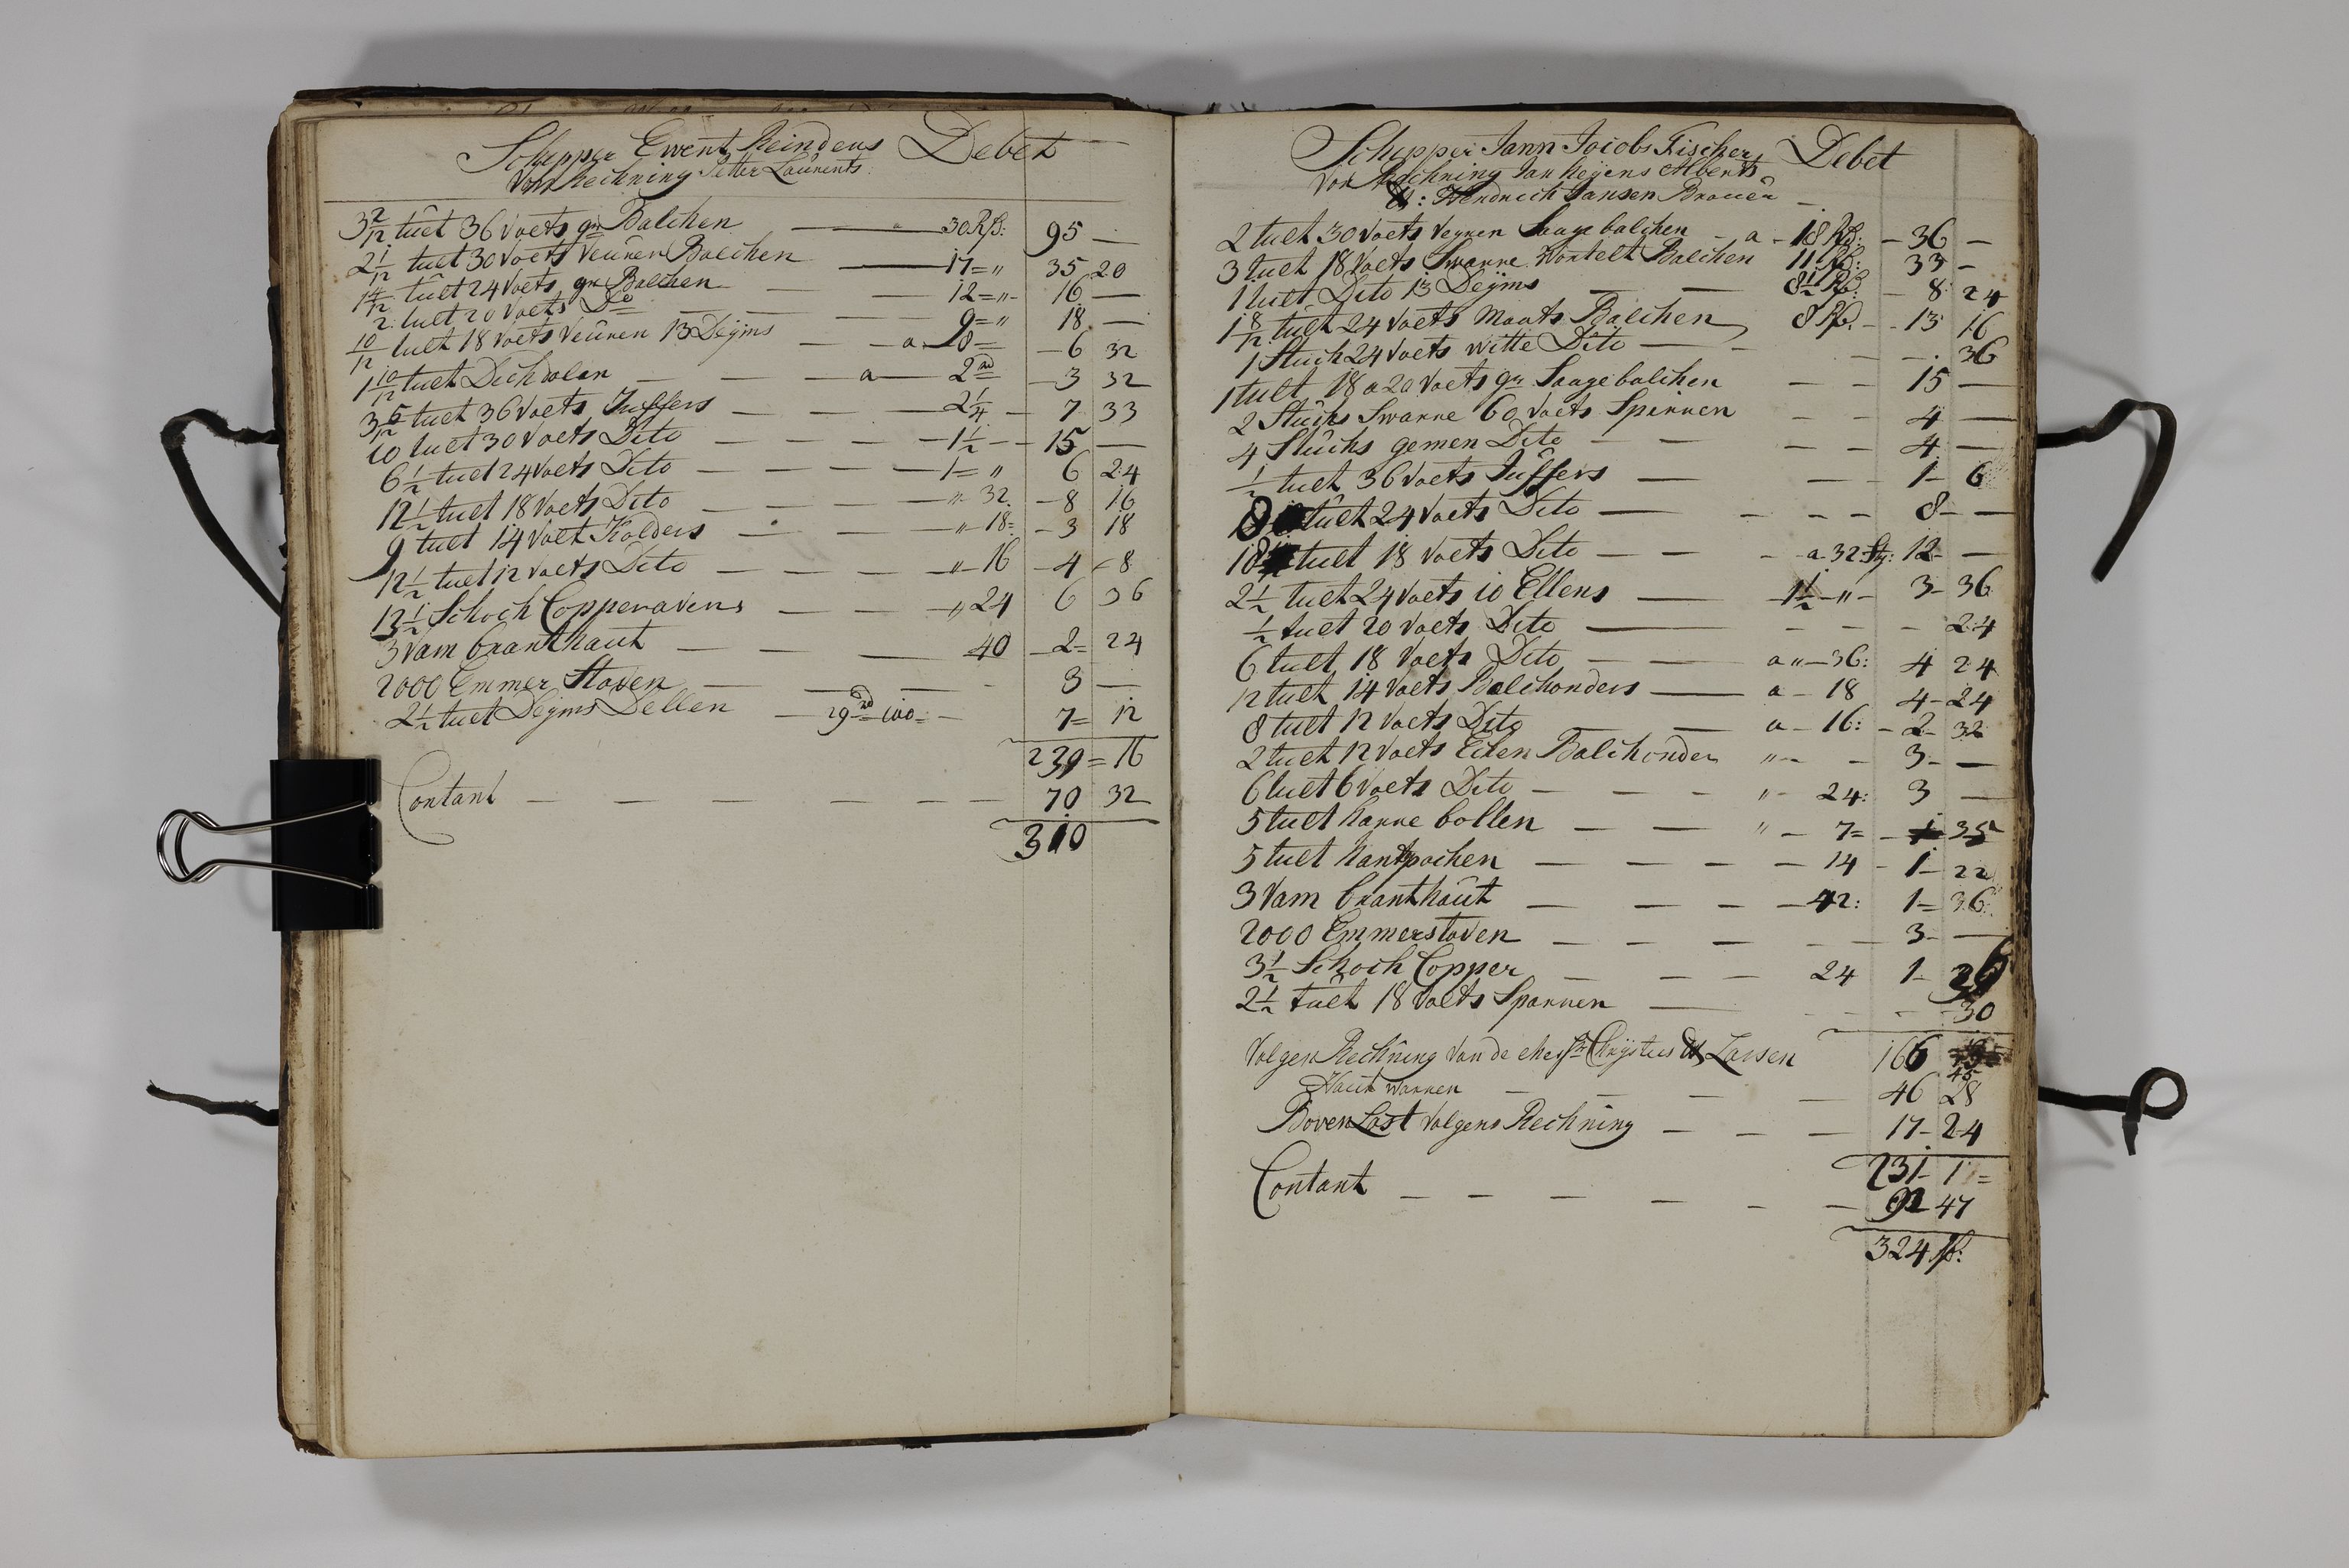 Schepper Ewent Reinders Debet
Vor Rechning Petter Laurents
3 2/12 tuet 36 Voets gr Balchen — 30 Rß: 95 —
2 1/12 tuet 30 Voets Veuren Balchen — 17 = " 35 20
1 4/12 tuet 24 Voets gr Balchen — 12 = " 16 —
2 tuet 20 Voets Do — 9 = " 18 —
10/12 tuet 18 Voets Veuren 13 Deyms — a 8 = 6 32
1 10/12 tuet Dechdolen — a — 2 3 32
3 5/12 tuet 36 Voets Juffers — 2 1/4 — 7 33
10 tuet 30 Voets Dito — 1 1/2 — 15 —
6 1/2 tuet 24 Voets Dito — 1 = " 6 24
12 1/2 tuet 18 Voets Dito — " 32 — 8 16
9 tuet 14 Voet Kolders — " 18 = 3 18
12 1/2 tuet 12 Voets Dito — " 16 — 4 8
13 1/2 Schoch Copperavens — " 24 6 36
3 Vam branthaut — 40 — 2 = 24
2000 Emmer Staven — 3 —
2 1/2 tuet Deyms Dellen — 29 = 100 = 7 = 12
239 = 16
Contant — 70 32
310
Schepper Jann Jacobs Fischer Debet
Vor Rechning Jan Reyens Alberts
&: Hendrich Jansen Brauer
2 tuet 30 Voets Veuren Saagebalchen — a — 18 Rß: — 36 —
3 tuet 18 Voets Swarre Wontelt Balchen 11 Rß: 33 —
1 tuet Dito 13 Deyms — 8 1/2 Rß — 8 24
1 8/12 tuet 24 Voets Maats Balchen 8 Rß. — 13 16
1 Stuch 24 Voets witte Dito — 36
1 tuet 18 a 20 Voets gr Saagebalchen — 15 —
2 Stuchs Swarre 60 Voets Spirren — 4 —
4 Stuchs gemen Dito — 4 —
1/2 tuet 36 Voets Juffers — 1 — 6
8 tuet 24 Voets Dito — 8 —
18 tuet 18 Voets Dito — a 32 Sty: 12 —
2 1/2 tuet 24 Voets 10 Ellens — 1 1/2 — " — 3 — 36
1/2 tuet 20 Voets Dito — 24
6 tuet 18 Voets Dito — a " — 36: 4 24
12 tuet 14 Voets Balchonders — a — 18 4 — 24
8 tuet 12 Voets Dito — a — 16: — 2 — 32
2 tuet 12 Voets Eiken Balchonder " — 3 —
6 tuet 6 Voets Dito — " — 24: 3 —
5 tuet Karre bollen — " — 7 = — 35
5 tuet hantpochen — 14 — 1 — 22
3 Vam branthaut — 42: 1 = 36
2000 Emmerstaven — 3 —
3 1/2 Schoch Copper — 24 1 — 36
2 1/2 tuet 18 Voets Sparren — 30
Volgen Rechning Van de Chrystus & Larsen 166 45
Haut warren — 46 28
Boven Last Volgens Rechning — 17 — 24
231 — 1 =
Contant — 92 47
324 ß: